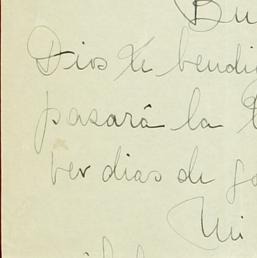 Bu
Dios te bendi
pasará la
ver dias de g
Mi